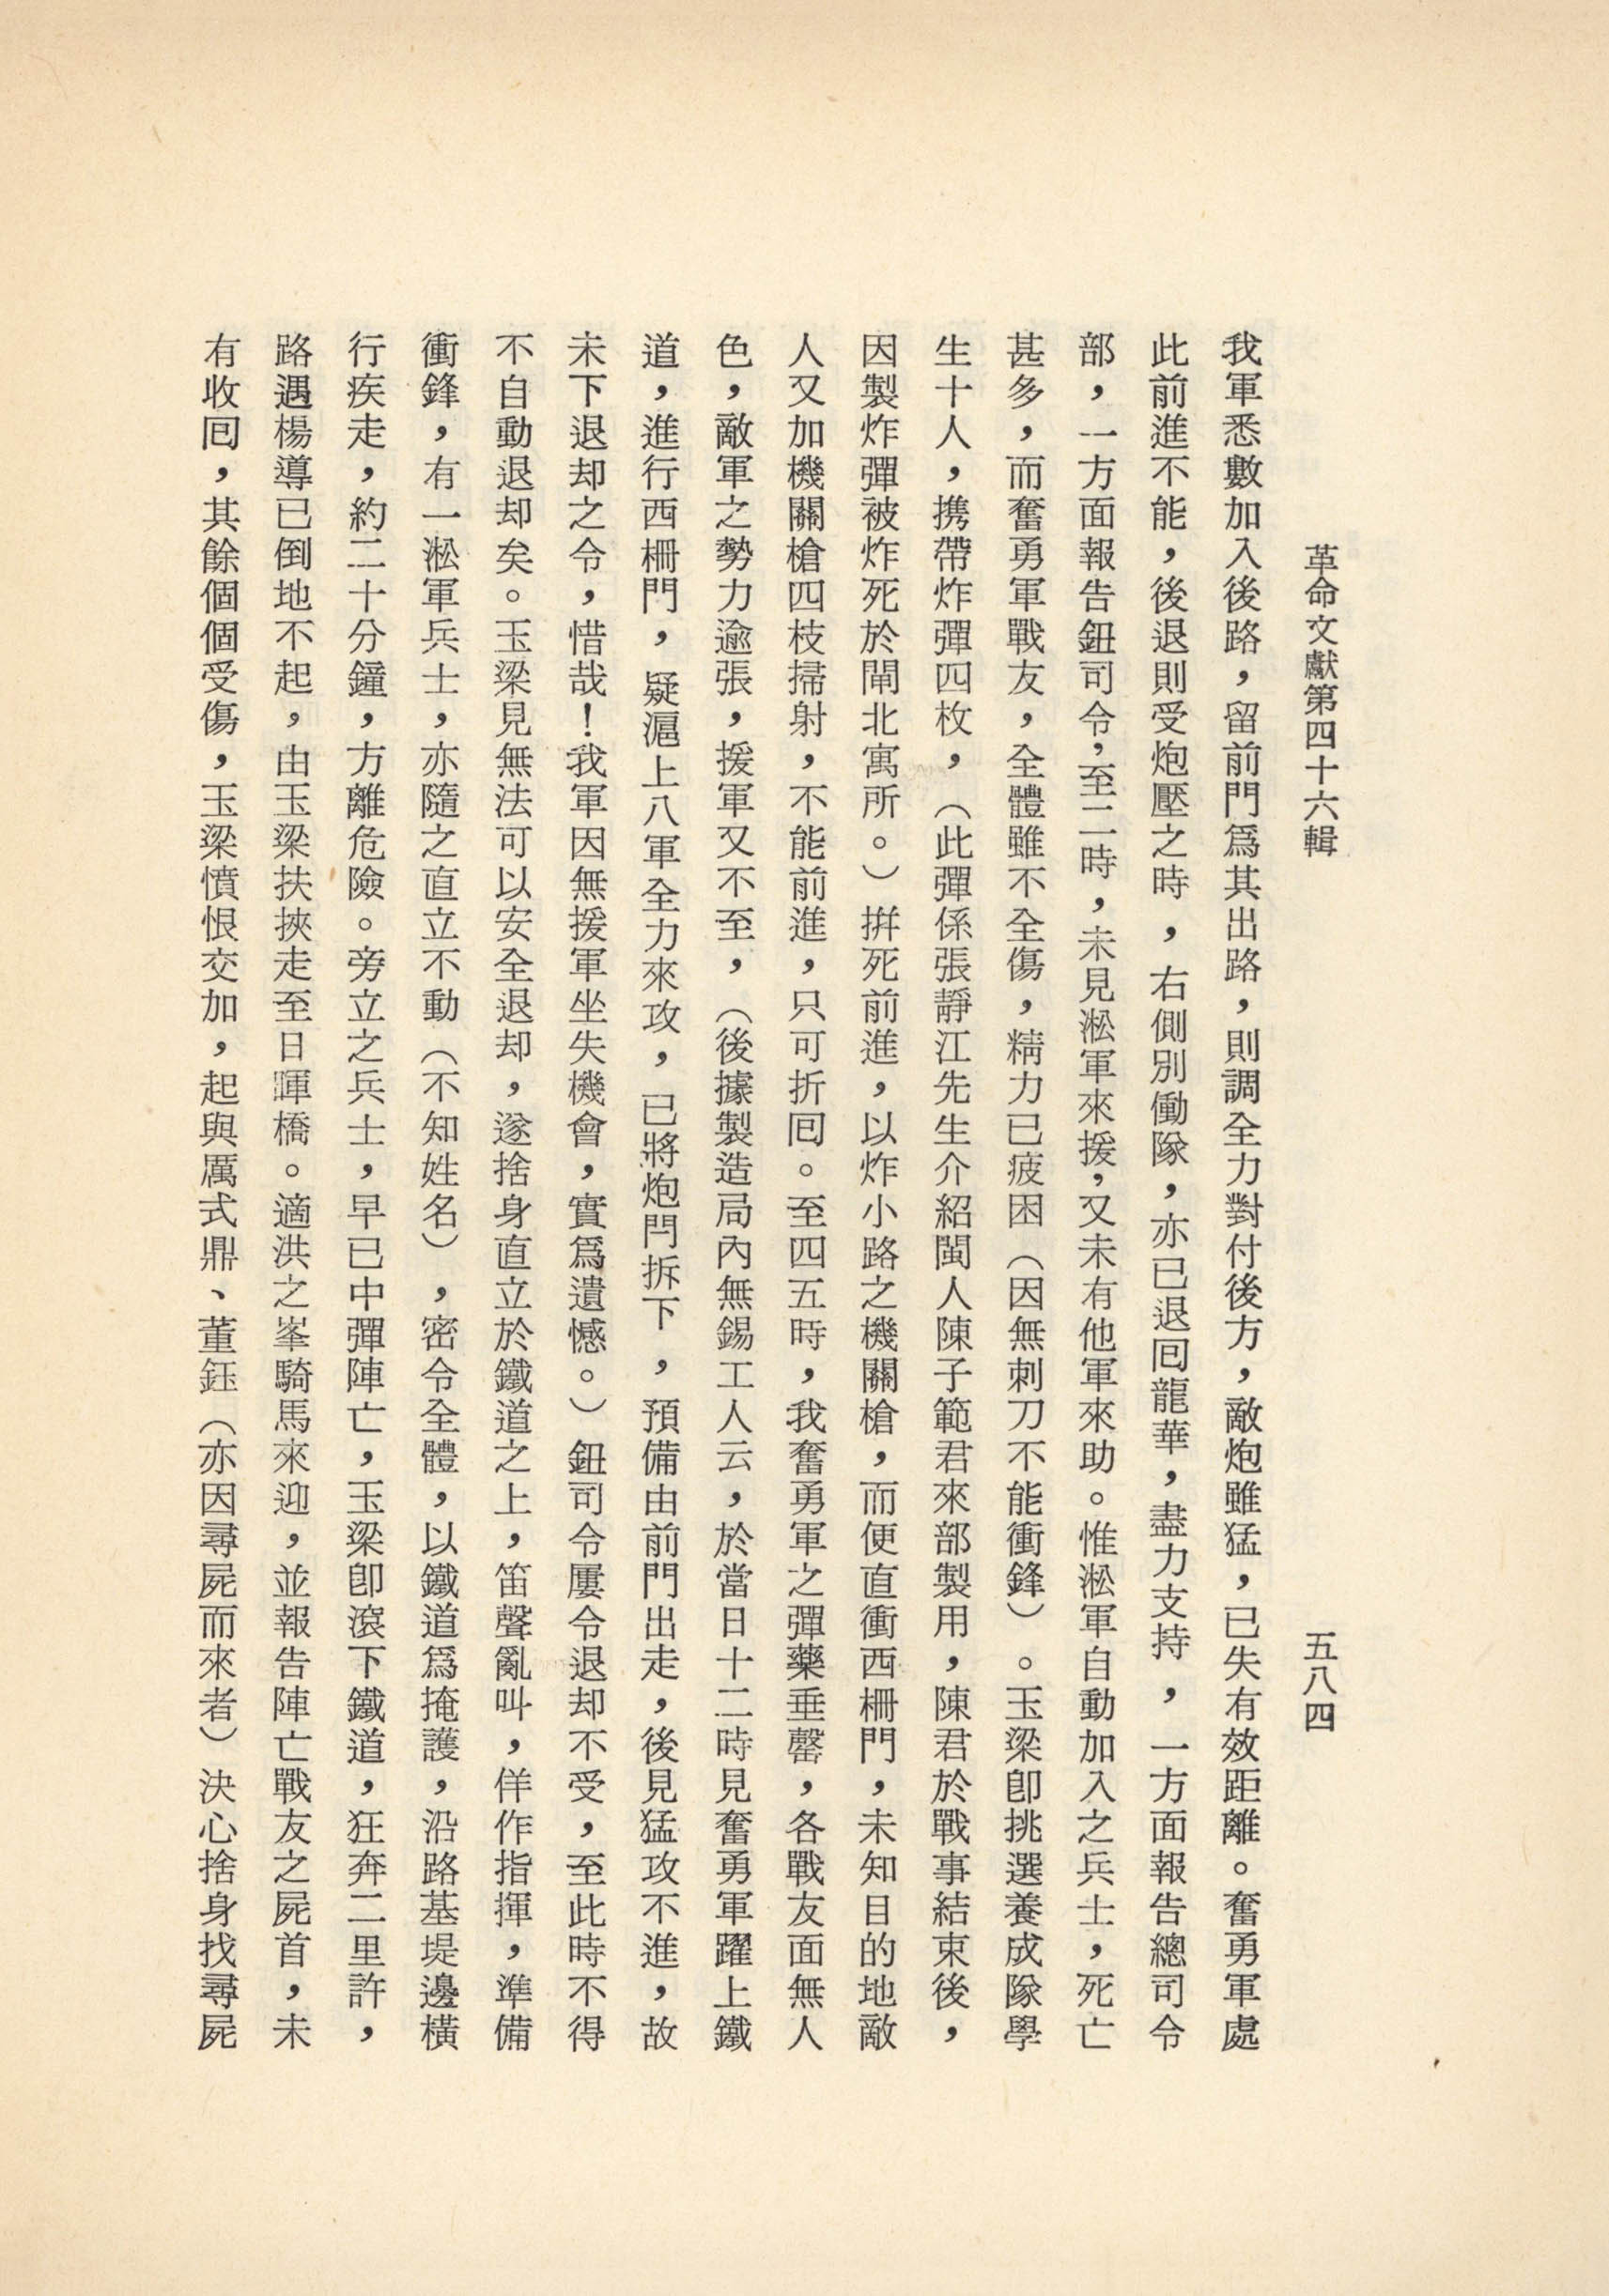 革命文獻第四十六輯　五八四
我軍悉數加入後路，留前門爲其出路，則調全力對付後方，敵炮雖猛，已失有效距離。奮勇軍處
此前進不能，後退則受炮壓之時，右側別働隊，亦已退囘龍華，盡力支持，一方面報告總司令
部，一方面報告鈕司令，至二時，未見淞軍來援，又未有他軍來助。惟淞軍自動加入之兵士，死亡
甚多，而奮勇軍戰友，全體雖不全傷，精力已疲困（因無刺刀不能衝鋒）。玉梁卽挑選養成隊學
生十人，携帶炸彈四枚，（此彈係張靜江先生介紹閩人陳子範君來部製用，陳君於戰事結束後，
因製炸彈被炸死於閘北寓所。）拚死前進，以炸小路之機關槍，而便直衝西柵門，未知目的地敵
人又加機關槍四枝掃射，不能前進，只可折囘。至四五時，我奮勇軍之彈藥垂罄，各戰友面無人
色，敵軍之勢力逾張，援軍又不至，（後據製造局內無錫工人云，於當日十二時見奮勇軍躍上鐵
道，進行西柵門，疑滬上八軍全力來攻，已將炮閂拆下，預備由前門出走，後見猛攻不進，故
未下退却之令，惜哉！我軍因無援軍坐失機會，實爲遺憾。）鈕司令屢令退却不受，至此時不得
不自動退却矣。玉梁見無法可以安全退却，遂捨身直立於鐵道之上，笛聲亂叫，佯作指揮，準備
衝鋒，有一淞軍兵士，亦隨之直立不動（不知姓名），密令全體，以鐵道爲掩護，沿路基堤邊橫
行疾走，約二十分鐘，方離危險。旁立之兵士，早已中彈陣亡，玉梁卽滾下鐵道，狂奔二里許，
路遇楊導已倒地不起，由玉梁扶挾走至日暉橋。適洪之峯騎馬來迎，並報告陣亡戰友之屍首，未
有收囘，其餘個個受傷，玉梁憤恨交加，起與厲式鼎、董鈺（亦因尋屍而來者）決心捨身找尋屍